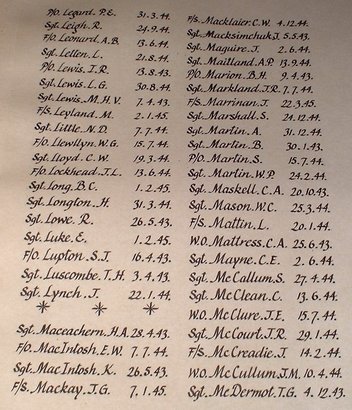 P/O. Legard. P.E. 31.3.44.
Sgt. Leigh. R. 24.9.44.
F/O. Leonard. A.B. 13.6.44.
Sgt. Letten. L. 21.8.44.
P/O. Lewis. I.R. 13.8.43.
Sgt. Lewis. L.G. 30.8.44.
Sgt. Lewis. M.H.V. 7.4.43.
F/S. Leyland. M. 2.1.45.
Sgt. Little. N.D. 7.7.44.
F/O. Llewllyn. W.G. 15.7.44.
Sgt. Lloyd. C.W. 19.3.44.
F/O. Lockhead. J.L. 13.6.44.
Sgt. Long. B.C. 1.2.45.
Sgt. Longton. H. 31.3.44.
Sgt. Lowe. R. 26.5.43.
Sgt. Luke. E. 1.2.45.
F/O. Lupton. S.J. 16.4.43.
Sgt. Luscombe. T.H. 3.4.43.
Sgt. Lynch. J. 22.1.44.
Sgt. Maceachern. H.A. 28.4.43.
F/O. MacIntosh. E.W. 7.7.44.
Sgt. MacIntosh. K. 26.5.43.
F/S. Mackay. J.G. 7.1.45.
F/S. Macklaier. C.W. 4.12.44.
Sgt. Macksimchuk. J. 5.5.43.
Sgt. Maguire. J. 2.6.44.
Sgt. Maitland. A.P. 13.9.44.
P/O. Marion. B.H. 9.4.43.
Sgt. Markland. J.R. 7.7.44.
F/S. Marrinan. J. 22.3.45.
Sgt. Marshall. S. 24.12.44.
Sgt. Martin. A. 31.12.44.
Sgt. Martin. B. 30.1.43.
P/O. Martin. S. 15.7.44.
Sgt. Martin. W.P. 24.2.44.
Sgt. Maskell. C.A. 20.10.43.
Sgt. Mason. W.C. 25.3.44.
F/S. Mattin. L. 20.1.44.
W.O. Mattress. C.A. 25.6.43.
Sgt. Mayne. C.E. 2.6.44.
Sgt. McCallum. S. 27.4.44.
Sgt. McClean. C. 13.6.44.
W.O. McClure. J.E. 15.7.44.
Sgt. McCourt. J.R. 29.1.44.
F/S. McCreadie. J. 14.2.44.
W.O. McCullum. J.M. 10.4.44.
Sgt. McDermot. T.G. 4.12.43.